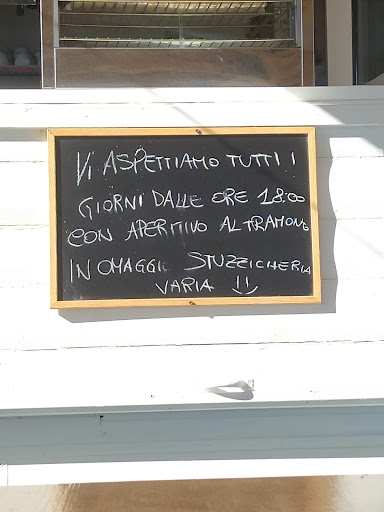 VI ASPETTIAMO TUTTI I
GIORNI DALLE ORE 18.00
CON APERITIVO AL TRAMONTO
IN OMAGGIO STUZZICHERIA
VARIA !!